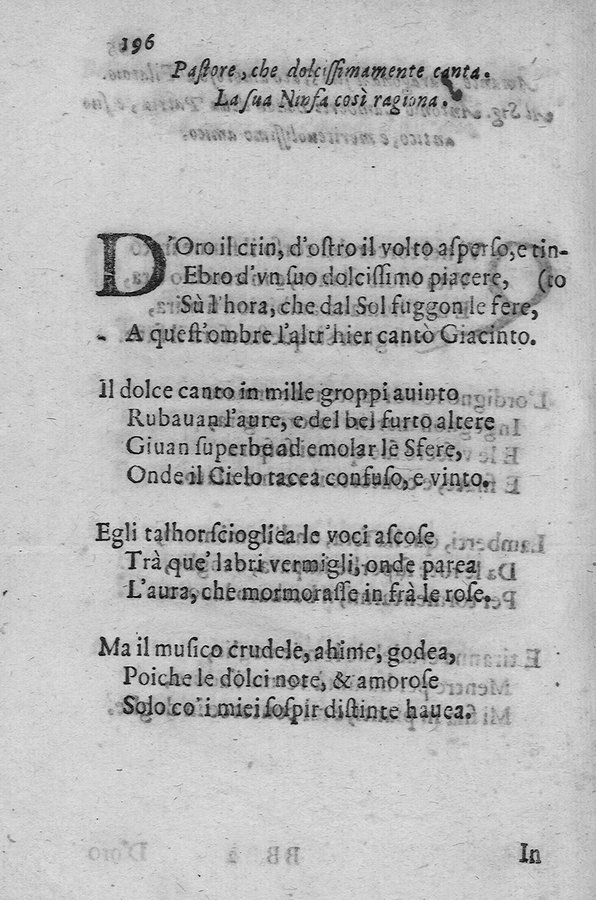 196
Paſtore, che dolciſſimamente canta.
La ſua Ninfa così ragiona.
D'Oro il crin, d'oſtro il volto aſperſo, e tin-
Ebro d'vn ſuo dolciſſimo piacere, (to
Sù l'hora, che dal Sol fuggon le fere,
A queſt'ombre l'altr'hier cantò Giacinto.
Il dolce canto in mille groppi auinto
Rubauan l'aure, e del bel furto altere
Giuan ſuperbe ad emolar le Sfere,
Onde il Cielo tacea confuſo, e vinto.
Egli talhor ſciogliea le voci aſcoſe
Trà que' labri vermigli, onde parea
L'aura, che mormoraſſe in frà le roſe.
Ma il muſico crudele, ahime, godea,
Poiche le dolci note, & amoroſe
Solo co' i miei ſoſpir diſtinte hauea.
In